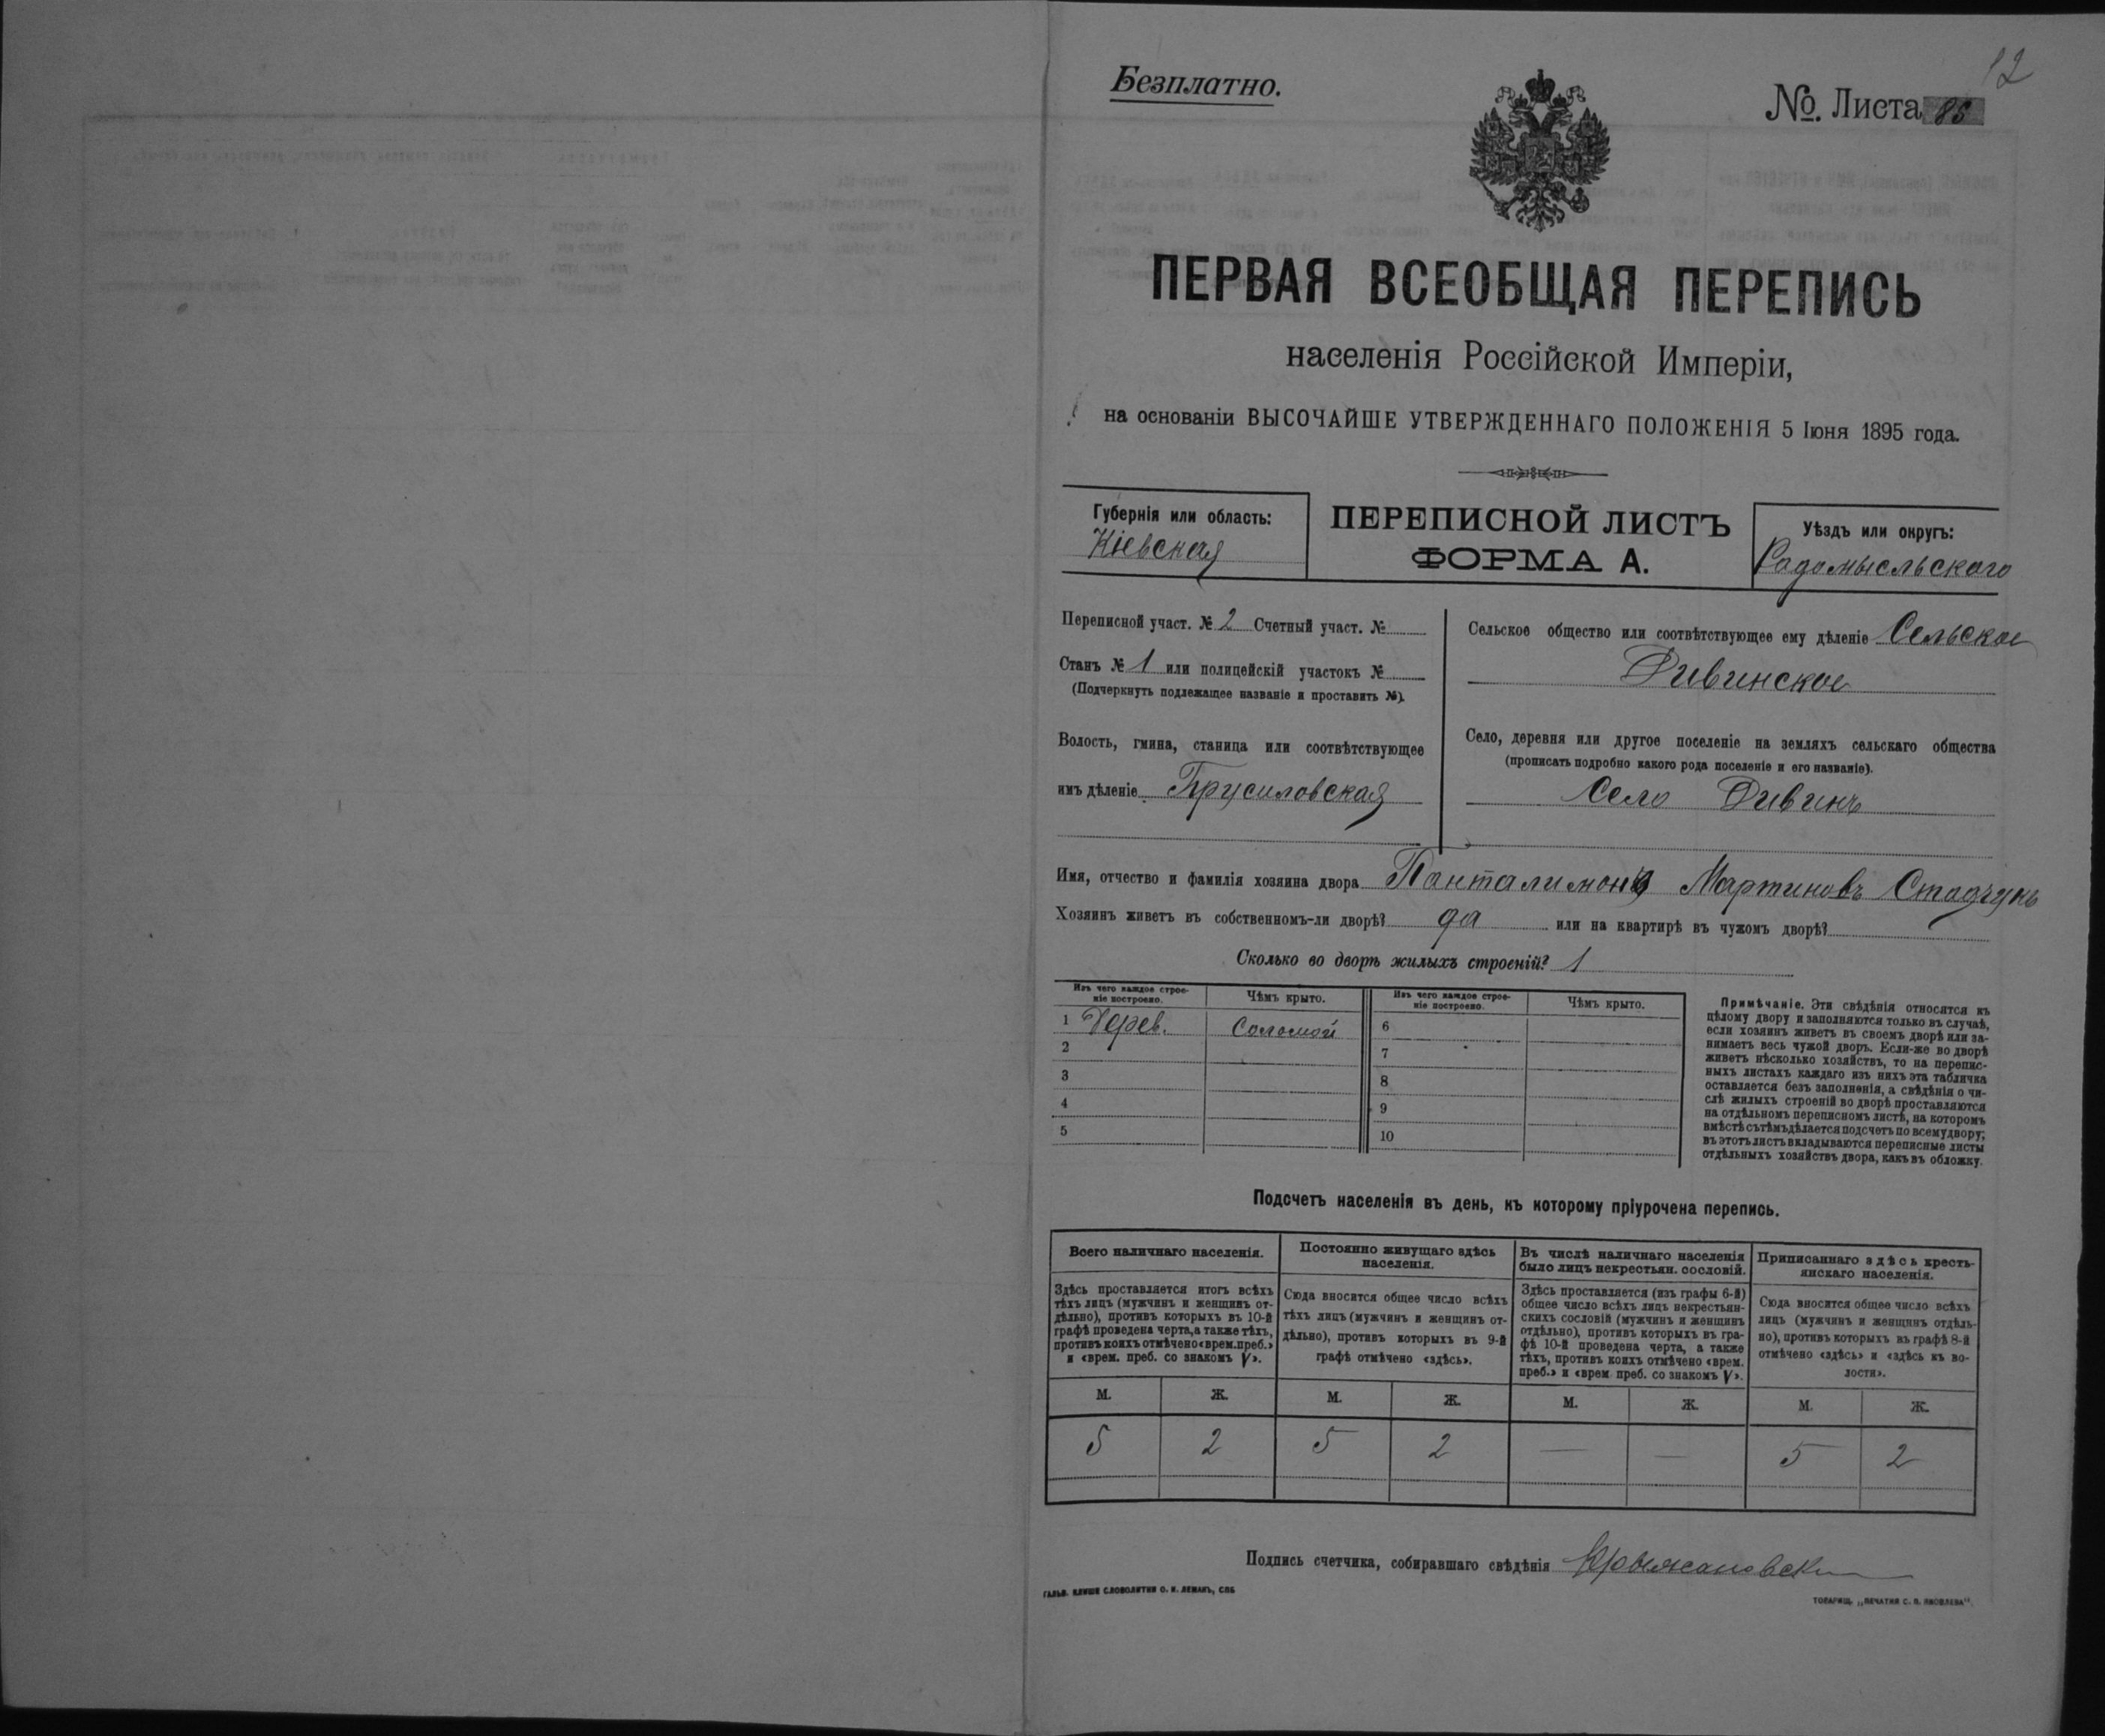 12
Безплатно.
№. Листа 86
ПЕРВАЯ ВСЕОБЩАЯ ПЕРЕПИСЬ
населенія Россійской Имперіи,
на основаніи ВЫСОЧАЙШЕ УТВЕРЖДЕННАГО ПОЛОЖЕНІЯ 5 Іюня 1895 года.
Губернія или область:
Кіевская
ПЕРЕПИСНОЙ ЛИСТЪ
ФОРМА А.
Уѣздъ или округъ:
Радомысльского
Переписной участ. № 2 Счетный участ. №
Станъ № 1 или полицейскій участокъ №
(Подчеркнуть подлежащее названіе и проставить №).
Волость, гмина, станица или соотвѣтствующее
имъ дѣленіе Брусиловская
Сельское общество или соотвѣтствующее ему дѣленіе Сельское
Дивинское
Село, деревня или другое поселеніе на земляхъ сельскаго общества
(прописать подробно какого рода поселеніе и его названіе).
Село Дивинъ
Имя, отчество и фамилія хозяина двора Панталимонъ Мартиновъ
Хозяинъ живетъ въ собственномъ-ли дворѣ? да или на квартирѣ въ чужомъ дворѣ?
Сколько во дворѣ жилыхъ строеній? 1
Изъ чего каждое строе-
ніе построено.
Чѣмъ крыто.
Изъ чего каждое строе-
ніе построено.
Чѣмъ крыто.
1 Дерев. Соломой 6
2 7
3 8
4 9
5 10
Примѣчаніе. Эти свѣдѣнія относятся къ
цѣлому двору и заполняются только въ случаѣ,
если хозяинъ живетъ въ своемъ дворѣ или за-
нимаетъ весь чужой дворъ. Если-же во дворѣ
живетъ нѣсколько хозяйствъ, то на перепис-
ныхъ листахъ каждаго изъ нихъ эта табличка
оставляется безъ заполненія, а свѣдѣнія о чи-
слѣ жилыхъ строеній во дворѣ проставляются
на отдѣльномъ переписномъ листѣ, на которомъ
вмѣстѣ съ тѣмъ дѣлается подсчетъ по всему двору;
въ этотъ листъ вкладываются переписные листы
отдѣльныхъ хозяйствъ двора, какъ въ обложку.
Подсчетъ населенія въ день, къ которому пріурочена перепись.
Всего наличнаго населенія.
Здѣсь проставляется итогъ всѣхъ
тѣхъ лицъ (мужчинъ и женщинъ от-
дѣльно), противъ которыхъ въ 10-й
графѣ проведена черта, а также тѣхъ,
противъ коихъ отмѣчено «врем. преб.»
и «врем. преб. со знакомъ V».
Постоянно живущаго здѣсь
населенія.
Сюда вносится общее число всѣхъ
тѣхъ лицъ (мужчинъ и женщинъ от-
дѣльно), противъ которыхъ въ 9-й
графѣ отмѣчено «здѣсь».
Въ числѣ наличнаго населенія
было лицъ некрестьян. сословій.
Здѣсь проставляется (изъ графы 6-й)
общее число всѣхъ лицъ некрестьян-
скихъ сословій (мужчинъ и женщинъ
отдѣльно), противъ которыхъ въ гра-
фѣ 10-й проведена черта, а также
тѣхъ, противъ коихъ отмѣчено «врем.
преб.» и «врем преб. со знакомъ V».
Приписаннаго здѣсь кресть-
янскаго населенія.
Сюда вносится общее число всѣхъ
лицъ (мужчинъ и женщинъ отдѣль-
но), противъ которыхъ въ графѣ 8-й
отмѣчено «здѣсь» и «здѣсь къ во-
лости».
М. Ж. М. Ж. М. Ж. М. Ж.
5 2 5 2 — — 5 2
Подпись счетчика, собиравшаго свѣдѣнія
ГАЛЬВ. КЛИШЕ СЛОВОЛИТНИ О. И. ЛЕМАНЪ, СПБ
ТОВАРИЩ. „ПЕЧАТНЯ С. П. ЯКОВЛЕВА".